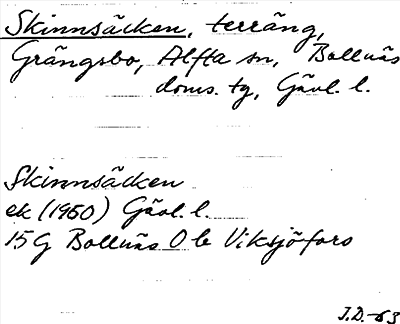 Skinnsäcken, terräng,
Grängsbo, Alfta sn, Bollnäs
doms. tg, Gävl. l.
Skinnsäcken
ek (1950) Gävl. l.
15G Bollnäs 0 b Viksjöfors
J.D.-63